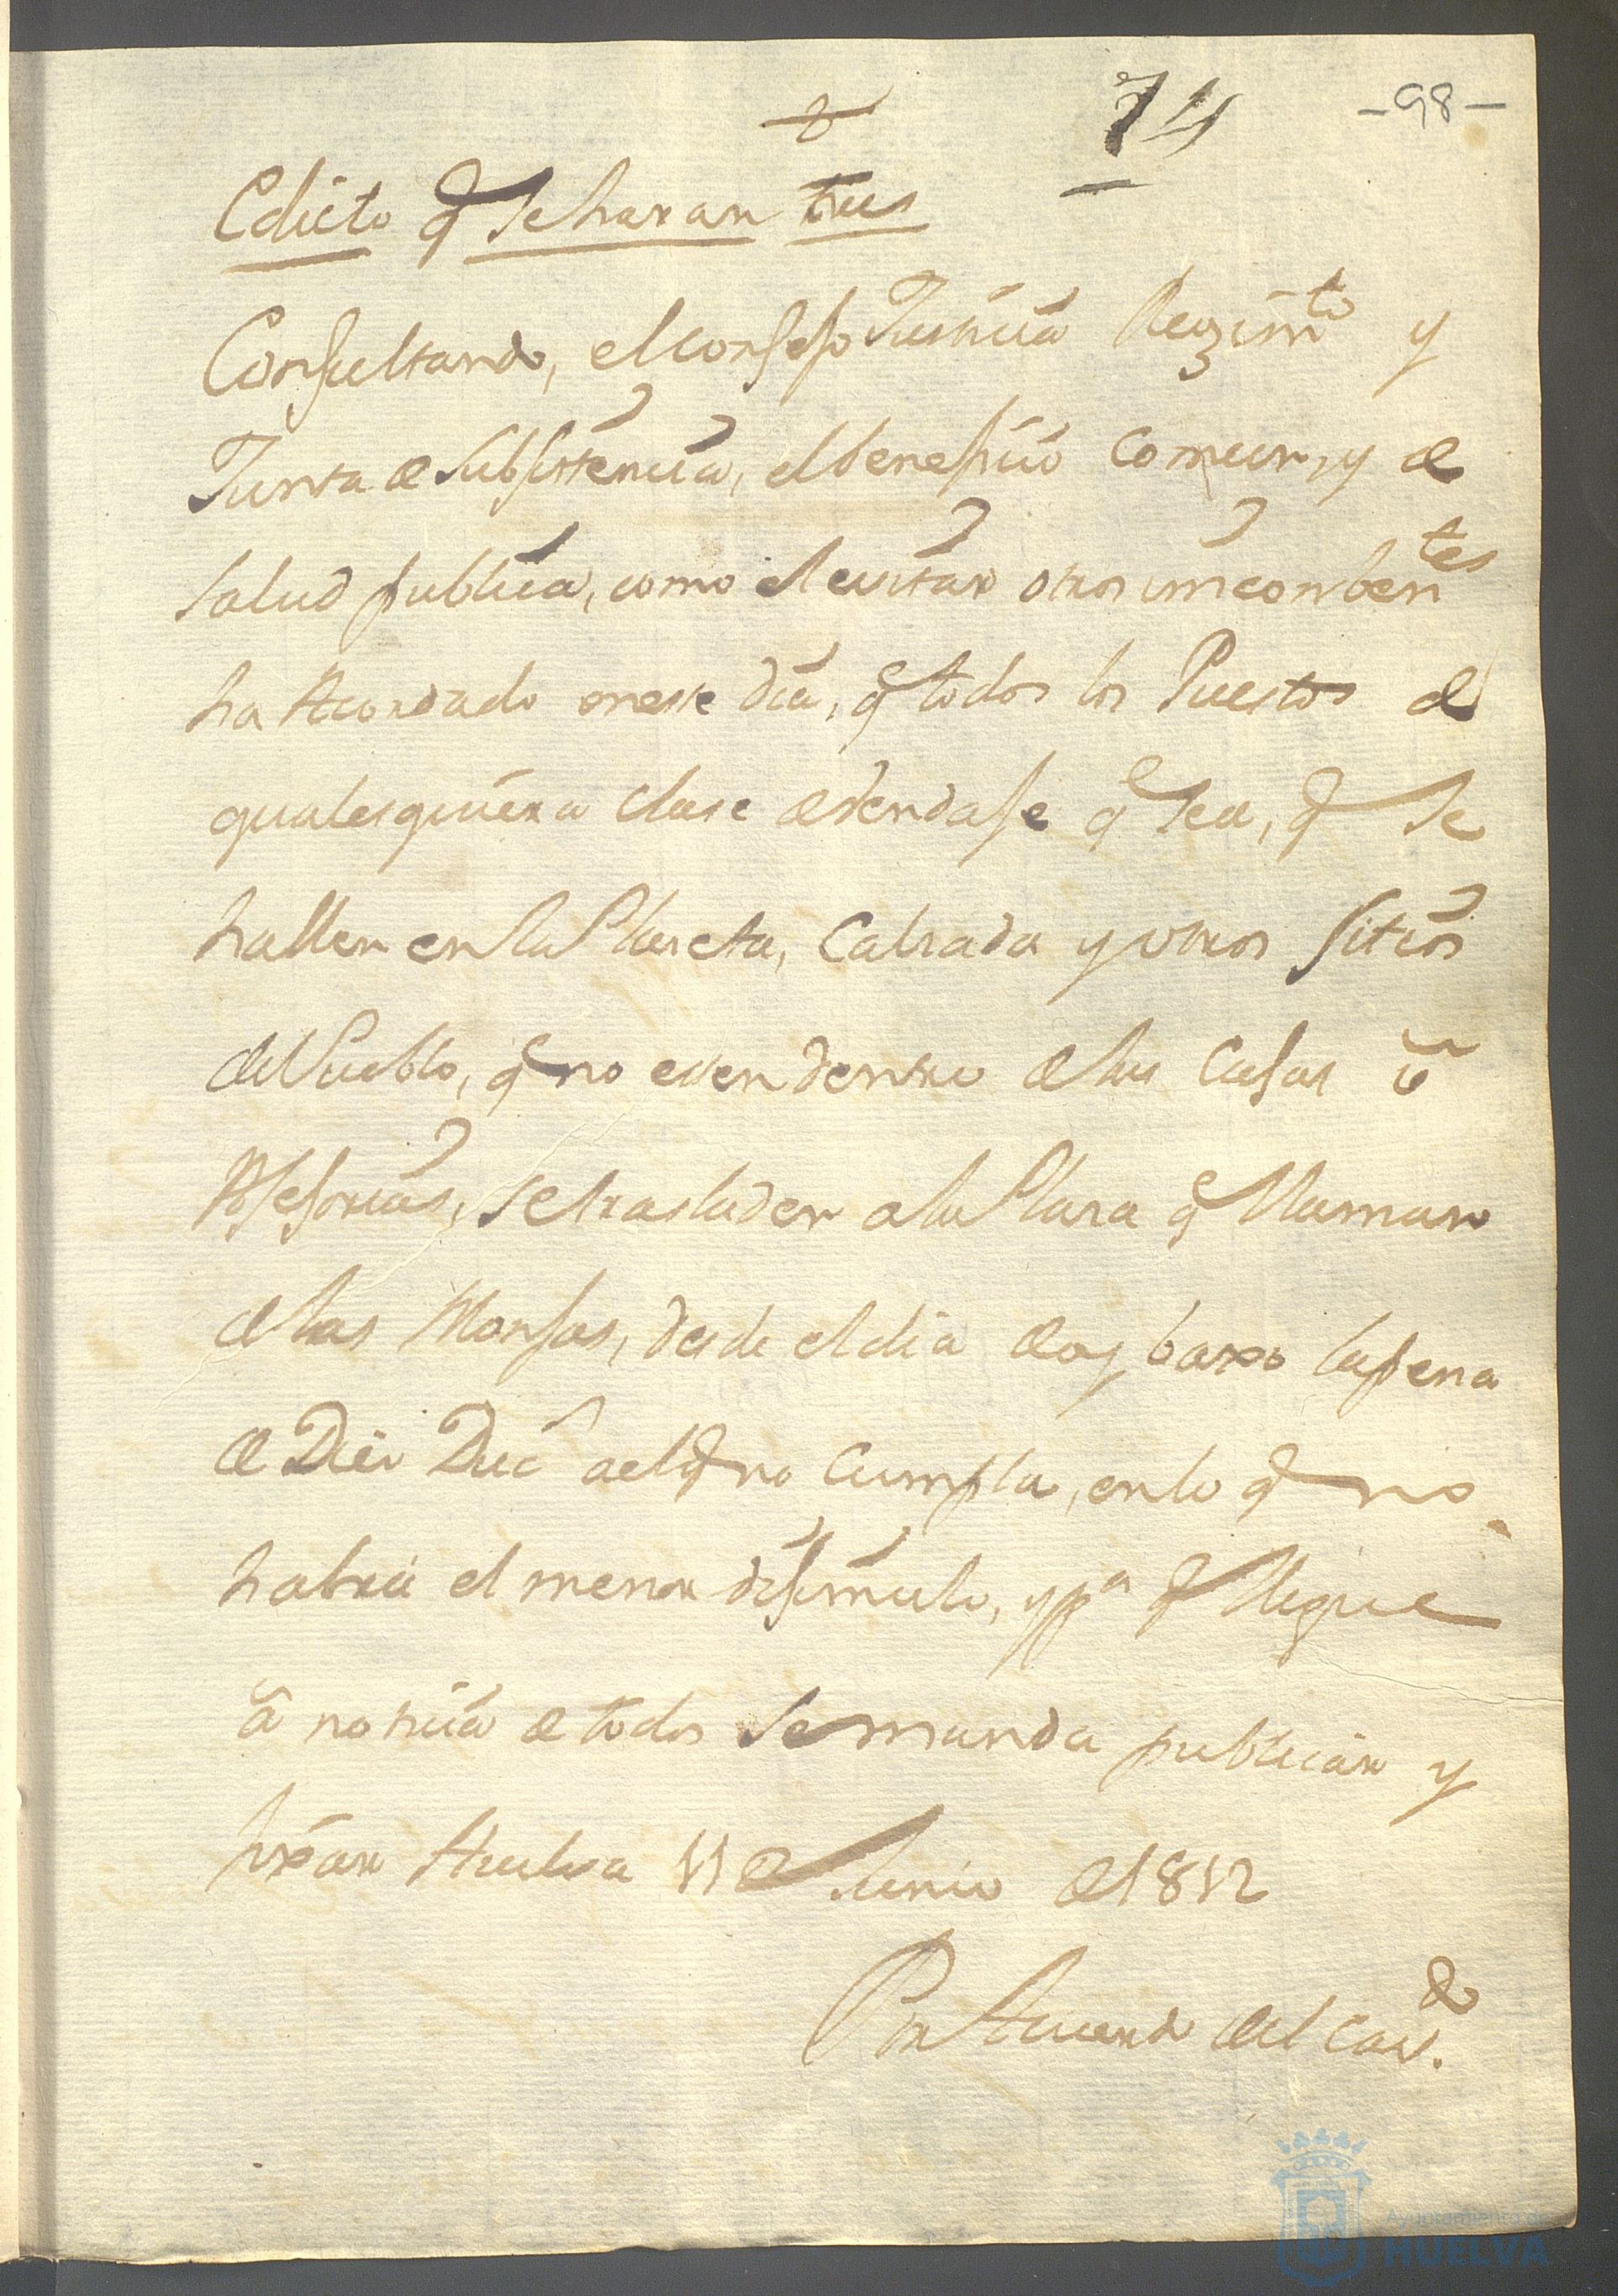 74 -98-
Edicto q.e se haran tres
Consultando, el consejo Justicia Regim.to y
Junta de Subsistencia, el beneficio comun, y de
salud publica, como el evitar otros inconben.tes
ha Acordado en este dia, q.e todos los Puestos de
qualesquiera clase de vendaje q.e sea, q.e se
hallen en la Placeta, Calzada y otros sitios
del Pueblo, q.e no esten dentro de las Casas ŭ
Asesorias, se trasladen a la Plaza q.e llaman
de las Monjas, desde el dia de oy baxo la pena
de Diez Duc.s ael q.e no cumpla, en lo q.e no
habra el menor disimulo, y p.a q.e llegue
â noticia de todos se manda publicar y
fixar Huelva 11 de Junio de 1812
Por Acuerdo del Cav.do
Ayuntamiento de
HUELVA